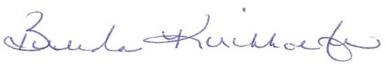 Brenda Kirchhoefer